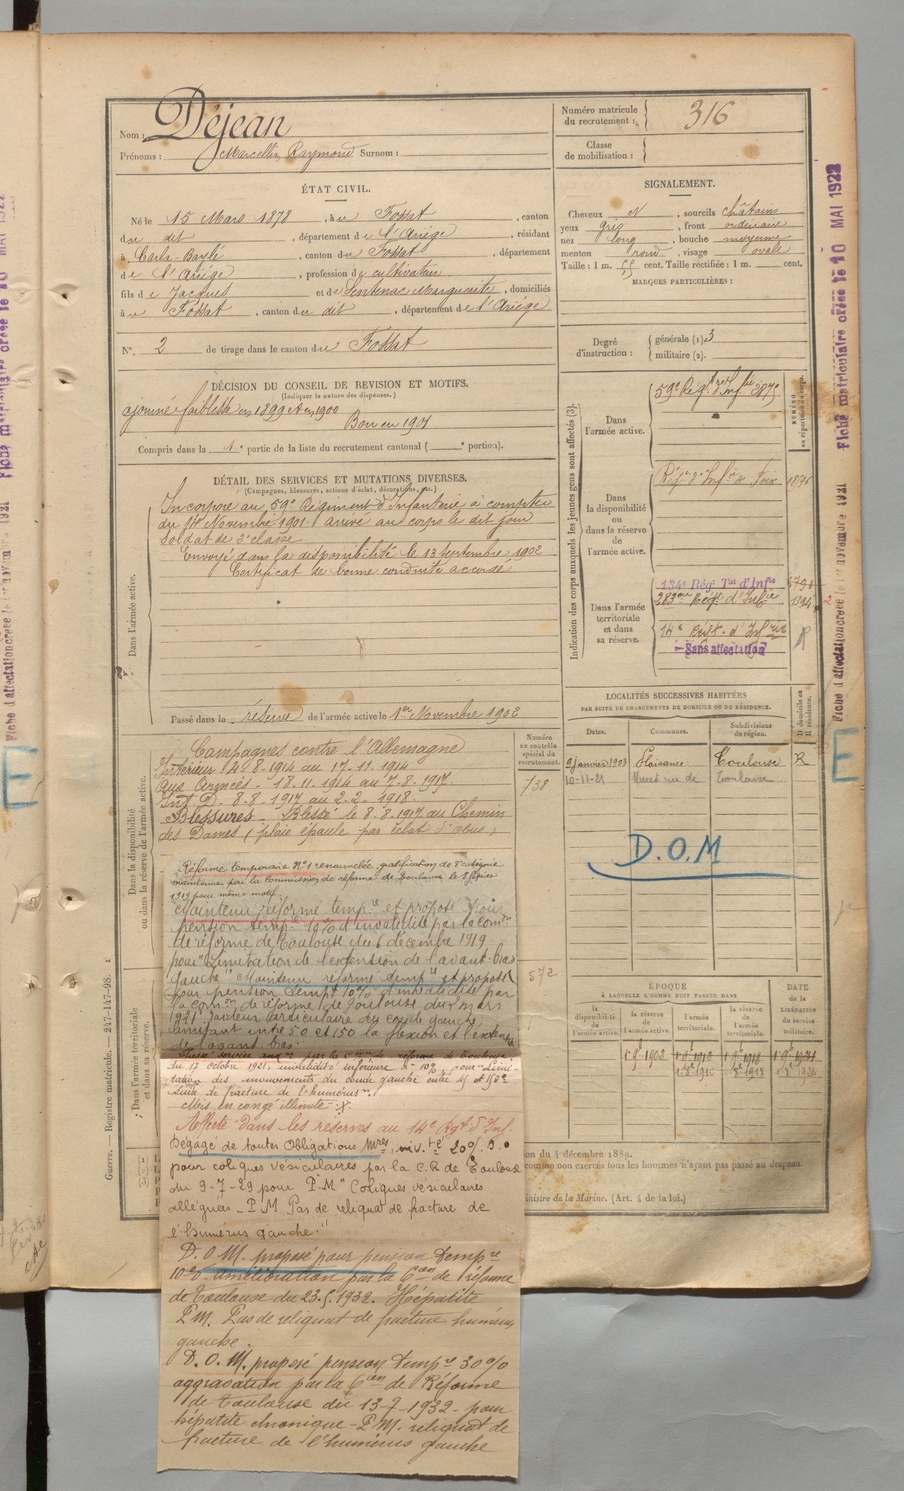 Nom : Déjean
Prénoms : Marcellin Raymond Surnom :
Numéro matricule du recrutement : 316
Classe de mobilisation :
ÉTAT CIVIL.
Né le 15 Mars 1878, à u Fossat, canton
du dit, département de l'Ariège, résidant
à Carla-Bayle, canton du Fossat, département
de l'Ariège, profession de cultivateur
fils de Jacques et de Sentenac Marguerite, domiciliés
à u Fossat, canton du dit, département de l'Ariège
N° 2 de tirage dans le canton du Fossat
SIGNALEMENT.
Cheveux, sourcils châtains
yeux gris, front ordinaire
nez long, bouche moyenne
menton rond, visage ovale
Taille : 1 m. 55 cent. Taille rectifiée : 1 m. cent.
MARQUES PARTICULIÈRES :
Degré d'instruction : générale (1) 3
militaire (2).
DÉCISION DU CONSEIL DE REVISION ET MOTIFS.
(Indiquer la nature des dispenses.)
ajourné faiblesse en 1899 et en 1900
Bon en 1901
Compris dans la 1e partie de la liste du recrutement cantonal ( e portion).
DÉTAIL DES SERVICES ET MUTATIONS DIVERSES.
(Campagnes, blessures, actions d'éclat, décorations, etc.)
Dans l'armée active.
Incorporé au 59e Régiment d'Infanterie à compter
du 14 Novembre 1901 arrivé au corps le dit jour
soldat de 2e classe
Envoyé dans la disponibilité le 13 septembre 1902
Certificat de bonne conduite accordé
Passé dans la réserve de l'armée active le 1er Novembre 1902
Indication des corps auxquels les jeunes gens sont affectés (3).
NUMÉRO au répertoire du corps.
Dans l'armée active.
59e Régt d'Infie
Dans la disponibilité ou dans la réserve de l'armée active.
Régt d'Infie de Foix
Dans l'armée territoriale et dans sa réserve.
134e Régt Tal d'Infie
283me Régt d'Infie
14e Régt d'Infrie
Sans affectation
LOCALITÉS SUCCESSIVES HABITÉES
PAR SUITE DE CHANGEMENTS DE DOMICILE OU DE RÉSIDENCE.
Dates. Communes. Subdivisions de région. D domicile ou R résidence.
9 Janvier 1903 Plaisance Toulouse R
10-11-21 Muret rue de Toulouse
D.O.M
Dans la disponibilité ou dans la réserve de l'armée active.
Numéro au contrôle spécial du recrutement.
738
572
Campagnes contre l'Allemagne
Intérieur 12-8-1914 au 17-11-1914
Aux Armées 18.11.1914 au 7-8-1917
Int D. 8-8-1917 au 2-2-1918.
Blessures Blessé le 8.8.1917 au Chemin
des Dames (plaie épaule par éclat d'obus)
Réforme temporaire N°1 renouvelée, gratification de 8e catégorie
maintenue par la Commission de réforme de Toulouse le 8 février
1919 pour même motif
Maintenu réformé tempre et proposé pour
pension tempre 10% d'invalidité par la Comon
de réforme de Toulouse du 6 décembre 1919
pour "Limitation de l'extension de l'avant bras
gauche" Maintenu réformé tempre et proposé
pour pension tempre 10% d'invalidité par
la Comon de réforme de Toulouse du mars
1921 raideur articulaire du coude gauche
limitant entre 50 et 150 la flexion et l'extension
de l'avant bras.
Classé service armé par la Cion de réforme de Toulouse
du 17 octobre 1921, invalidité inférieure à 10%, pour "Limi-
tation des mouvements du coude gauche
suite de fracture de l'humérus".
Mis en congé illimité.
Affecté dans les réserves au 14e Régt d'Inf.
Dégagé de toutes Obligations Mres, inv.té 20%
pour coliques vésiculaires par la C.R de Toulouse
du 9-7-29 pour P.M "Coliques vésiculaires
alléguées - P.M Pas de reliquat de fracture de
l'humérus gauche."
D.O.M. proposé pour pension tempre
10% amélioration par la Cion de réforme
de Toulouse du 23.5.1932. Hépatite
P.M. Pas de reliquat de fracture humérus
gauche.
D.O.M. proposé pension tempre 30%
aggravation par la Cion de Réforme
de Toulouse du 13-7-1932 - pour
hépatite chronique - P.M. reliquat de
fracture de l'humérus gauche
Dans l'armée territoriale et dans sa réserve.
ÉPOQUE
À LAQUELLE L'HOMME DOIT PASSER DANS
la disponibilité de l'armée active. la réserve de l'armée active. l'armée territoriale. la réserve de l'armée territoriale.
DATE de la LIBÉRATION du service militaire.
ion du 4 décembre 1889.
comme non exercés tous les hommes n'ayant pas passé au drapeau.
inistre de la Marine. (Art. 4 de la loi.)
Guerre. — Registre matricule. — 247-147-98.
Fiche matriculaire créée le 10 MAI 1922
Fiche d'affectation créée le novembre 1921
E
E